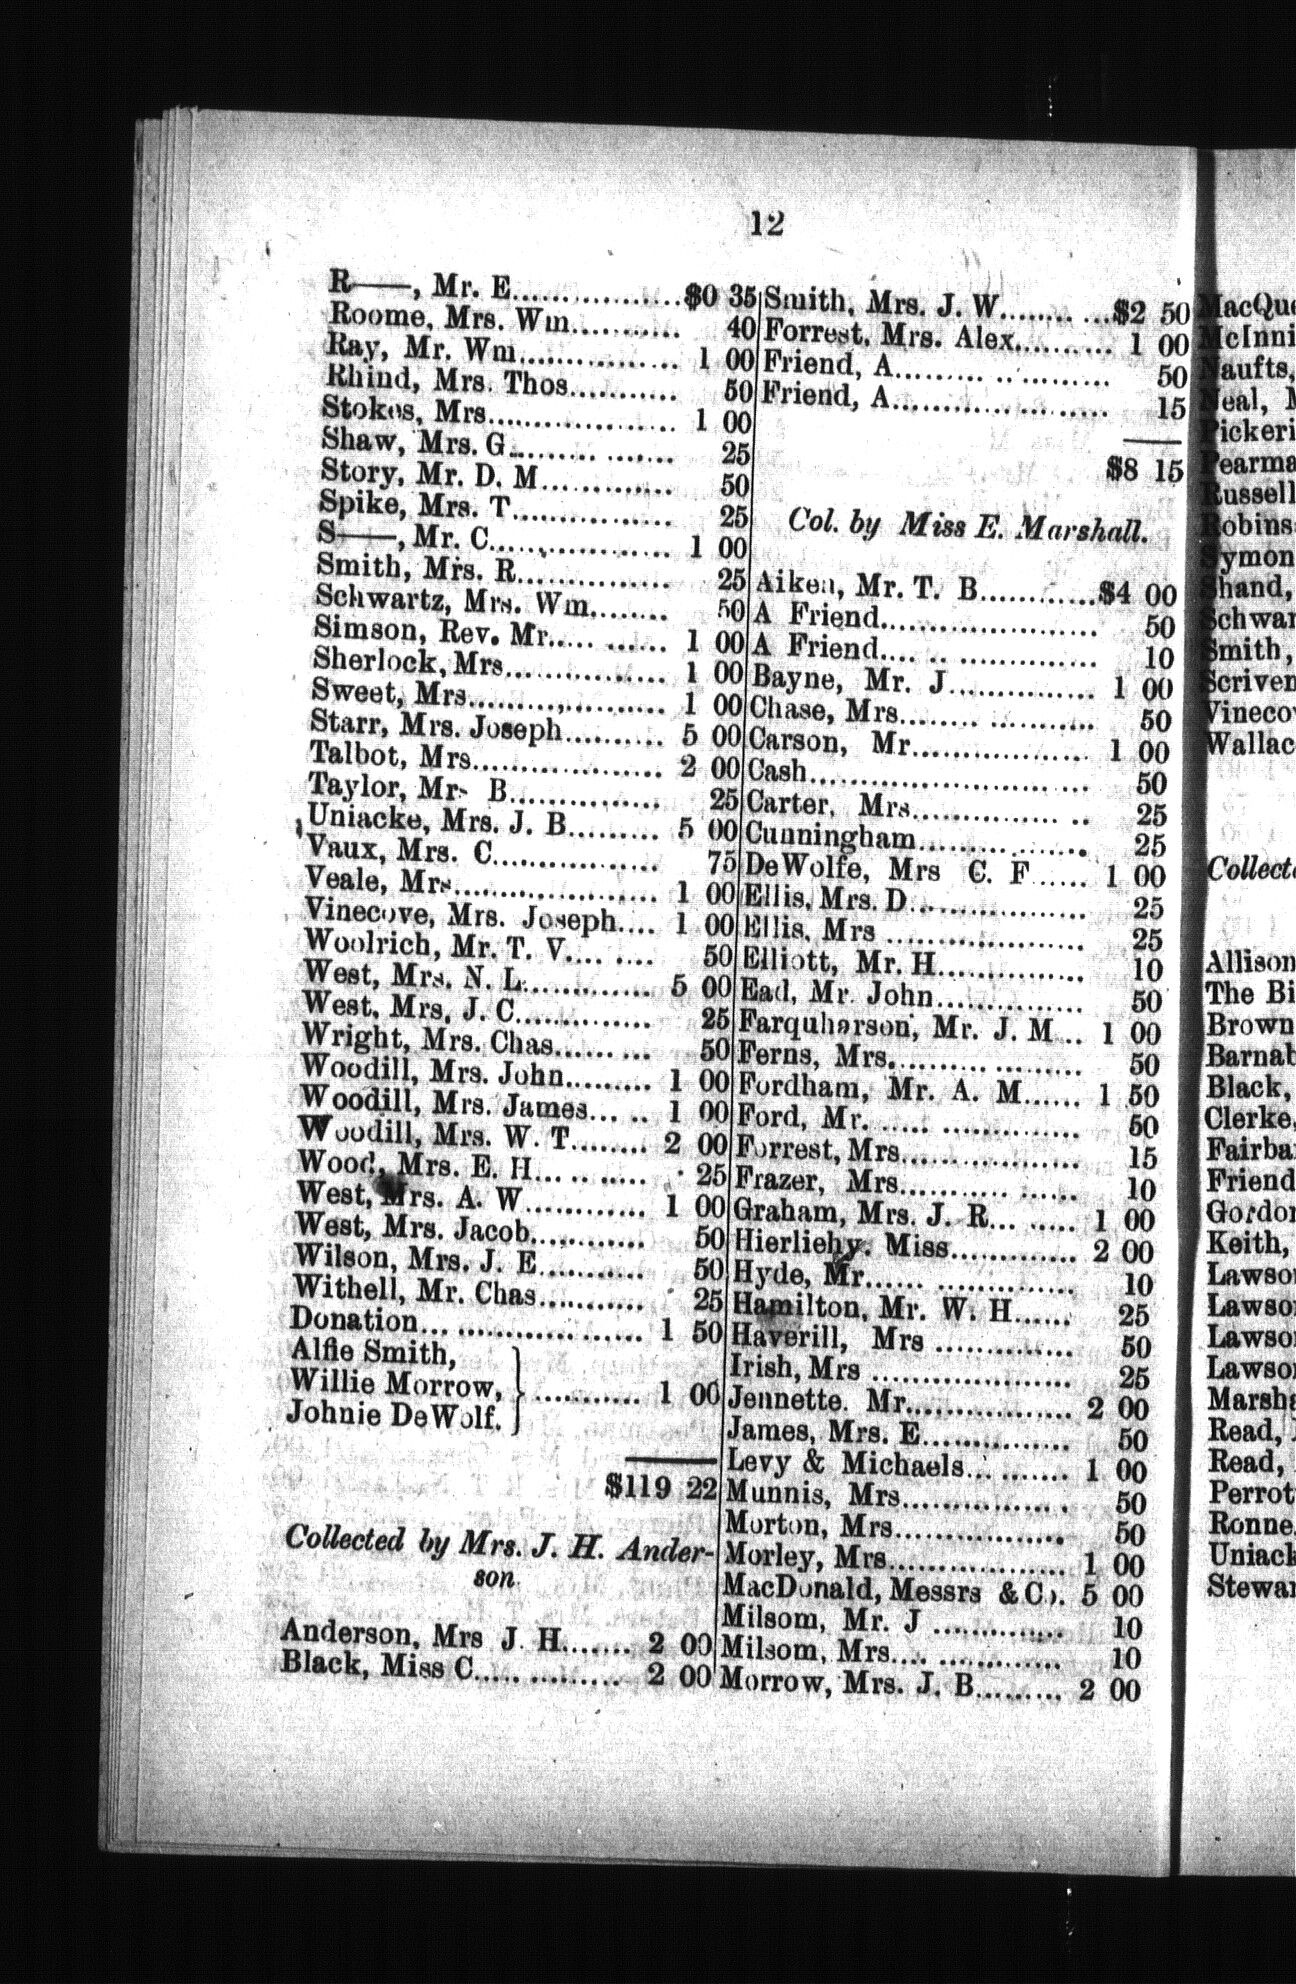 12
R——, Mr. E..................$0 35
Roome, Mrs. Wm........... 40
Ray, Mr. Wm................ 1 00
Rhind, Mrs. Thos........... 50
Stokes, Mrs.................. 1 00
Shaw, Mrs. G................ 25
Story, Mr. D. M............. 50
Spike, Mrs. T................ 25
S——, Mr. C.................. 1 00
Smith, Mrs. R............... 25
Schwartz, Mrs. Wm........ 50
Simson, Rev. Mr............ 1 00
Sherlock, Mrs................ 1 00
Sweet, Mrs................... 1 00
Starr, Mrs. Joseph.......... 5 00
Talbot, Mrs.................. 2 00
Taylor, Mrs B............... 25
Uniacke, Mrs. J. B......... 5 00
Vaux, Mrs. C................ 75
Veale, Mrs.................... 1 00
Vinecove, Mrs. Joseph.... 1 00
Woolrich, Mr. T. V......... 50
West, Mrs. N. L............. 5 00
West, Mrs. J. C.............. 25
Wright, Mrs. Chas......... 50
Woodill, Mrs. John......... 1 00
Woodill, Mrs. James...... 1 00
Woodill, Mrs. W. T........ 2 00
Wood, Mrs. E. H........... 25
West, Mrs. A. W............ 1 00
West, Mrs. Jacob........... 50
Wilson, Mrs. J. E........... 50
Withell, Mr. Chas........... 25
Donation...................... 1 50
Alfie Smith,
Willie Morrow, } ............ 1 00
Johnie DeWolf.
$119 22
Collected by Mrs. J. H. Ander-
son
Anderson, Mrs J. H....... 2 00
Black, Miss C............... 2 00
Smith, Mrs. J. W...........$2 50
Forrest, Mrs. Alex.......... 1 00
Friend, A..................... 50
Friend, A..................... 15
$8 15
Col. by Miss E. Marshall.
Aiken, Mr. T. B............$4 00
A Friend...................... 50
A Friend...................... 10
Bayne, Mr. J............... 1 00
Chase, Mrs................... 50
Carson, Mr.................. 1 00
Cash........................... 50
Carter, Mrs.................. 25
Cunningham................. 25
DeWolfe, Mrs C. F...... 1 00
Ellis, Mrs. D................. 25
Ellis, Mrs .................... 25
Elliott, Mr. H............... 10
Ead, Mr. John.............. 50
Farquharson, Mr. J. M... 1 00
Ferns, Mrs................... 50
Fordham, Mr. A. M...... 1 50
Ford, Mr..................... 50
Forrest, Mrs................. 15
Frazer, Mrs.................. 10
Graham, Mrs. J. R........ 1 00
Hierliehy, Miss............. 2 00
Hyde, Mr.................... 10
Hamilton, Mr. W. H...... 25
Haverill, Mrs .............. 50
Irish, Mrs ................... 25
Jennette. Mr................. 2 00
James, Mrs. E............... 50
Levy & Michaels........... 1 00
Munnis, Mrs................. 50
Morton, Mrs................. 50
Morley, Mrs.................. 1 00
MacDonald, Messrs & Co. 5 00
Milsom, Mr. J ............. 10
Milsom, Mrs................. 10
Morrow, Mrs. J. B......... 2 00
MacQue
McInni
Naufts,
Neal, M
Pickeri
Pearma
Russell
Robins
Symon
Shand,
Schwar
Smith,
Scriven
Vineco
Wallac
Collect
Allison
The Bi
Brown
Barnab
Black,
Clerke,
Fairba
Friend
Gordon
Keith,
Lawso
Lawso
Lawso
Lawso
Marsha
Read,
Read,
Perrot
Ronne
Uniack
Stewar